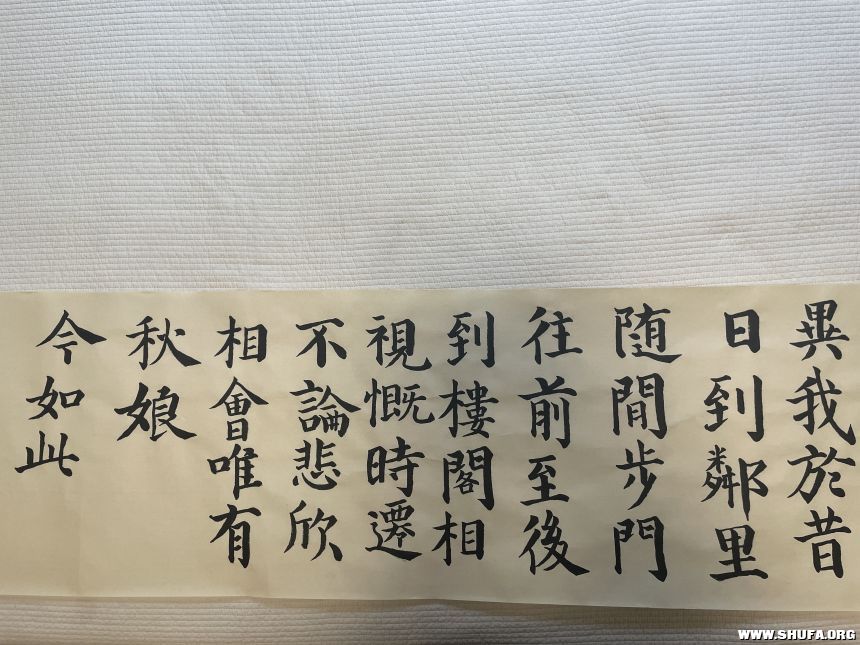 畢我於昔
日到鄰里
随閒步門
往前至後
到樓閣相
視慨時遷
不論悲欣
相會唯有
秋娘
今如此
WWW.SHUFA.ORG